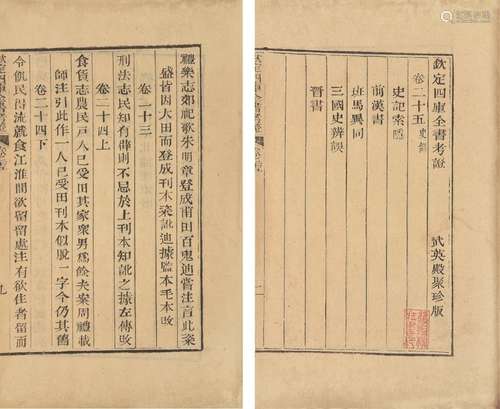 欽定四庫全書考證
卷二十五 史部
史記索隱
前漢書
班馬異同
三國史辨誤
晉書
武英殿聚珍版
禮樂志郊祀歌朱明章登成甫田百鬼迪嘗注言此粢
盛皆因大田而登成刊本粢訛迪據監本毛本改
卷二十三
刑法志民知有辟則不忌於上刊本知訛之據左傳改
卷二十四上
食貨志農民戸人已受田其家衆男爲餘夫案周禮載
師注引此作一人已受田刊本似脫一字今仍其舊
卷二十四下
令飢民得流就食江淮間欲留留處注有欲住者留而
九